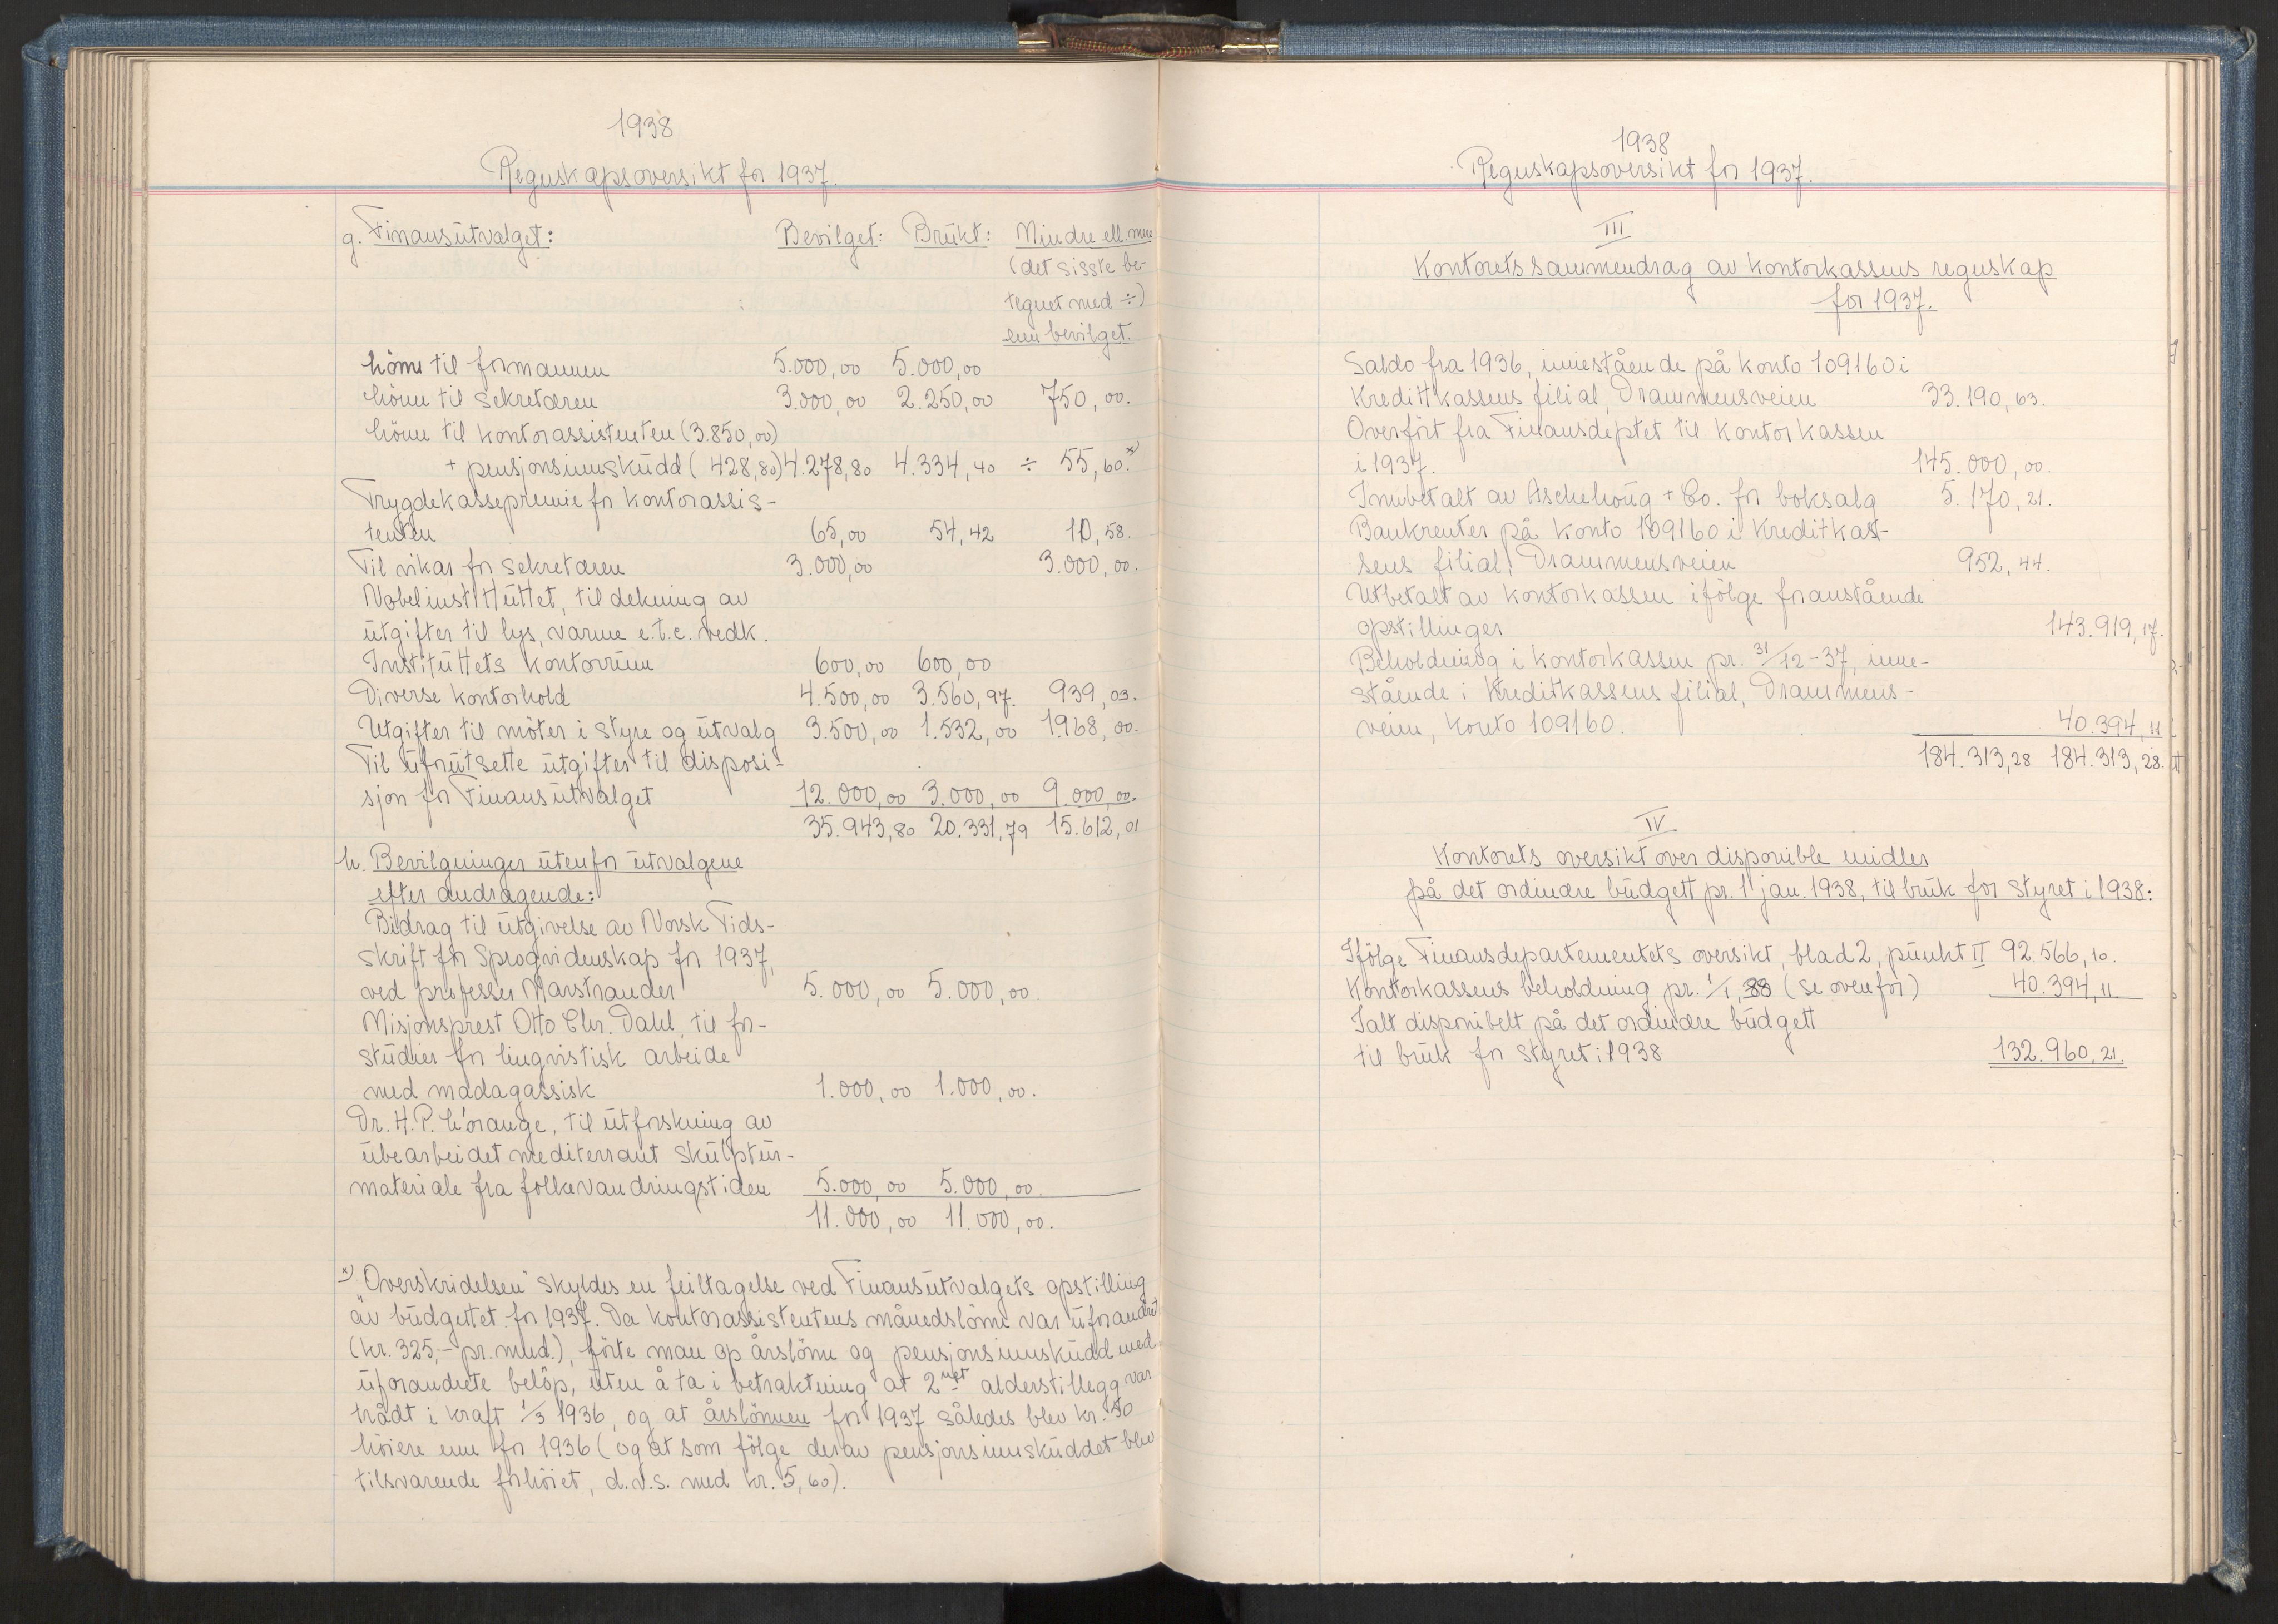 1938
Regnskapsoversikt for 1937.
g. Finansutvalget: Bevilget: Brukt: Mindre ell. mere
(det sisste be-
tegnet med ÷)
enn bevilget.
Lönn til formannen 5.000,00 5.000,00
Lönn til sekretæren 3.000,00 2.250,00 750,00.
Lönn til kontorassistenten (3.850,00)
+ pensjonsinnskudd (428,80) 4.278,80 4.334,40 ÷ 55,60.*)
Trygdekassepremie for kontorassis-
tenten 65,00 54,42 10,58.
Til vikar for sekretæren 3.000,00 3.000,00.
Nobelinstituttet, til dekning av
utgifter til lys, varme e.t.c. vedk.
Instituttets kontorrum 600,00 600,00
Diverse kontorhold 4.500,00 3.560,97. 939,03.
Utgifter til möter i styre og utvalg 3.500,00 1.532,00 1.968,00.
Til uforutsette utgifter til disposi-
sjon for Finansutvalget 12.000,00 3.000,00 9.000,00.
35.943,80 20.331,79 15.612,01
h. Bevilgninger utenfor utvalgene
efter andragende:
Bidrag til utgivelse av Norsk Tids-
skrift for Sprogvidenskap for 1937,
ved professer Marstrander 5.000,00 5.000,00.
Misjonsprest Otto Chr. Dahl, til for-
studier for lingvistisk arbeide
med madagassisk 1.000,00 1.000,00.
Dr. H.P. L'orange, til utforskning av
ubearbeidet mediterrant skulptur-
materiale fra folkevandringstiden 5.000,00 5.000,00.
11.000,00 11.000,00.
*) "Overskridelsen" skyldes en feiltagelse ved Finansutvalgets opstilling
av budgettet for 1937. Da kontorassistentens månedslönn var uforandret
(kr. 325,- pr. mnd.), förte man op årslönn og pensjonsinnskudd med
uforandrete belöp, uten å ta i betraktning at 2net alderstillegg var
trådt i kraft 1/3 1936, og at årslönnen for 1937 således blev kr. 50
höiere enn for 1936 (og at som fölge derav pensjonsinnskuddet blev
tilsvarende forhöiet, d.v.s. med kr. 5,60).
1938
Regnskapsoversikt for 1937.
III
Kontorets sammendrag av kontorkassens regnskap
for 1937.
Saldo fra 1936, innestående på konto 109160 i
Kredittkassens filial, Drammensveien 33.190,63.
Overfört fra Finansdeptet til kontorkassen
i 1937. 145.000,00.
Innbetalt av Aschehoug + Co. for boksalg 5.170,21.
Bankrenter på konto 109160 i Kreditkas-
sens filial, Drammensveien 952,44.
Utbetalt av kontorkassen ifölge foranstående
opstillinger 143.919,17.
Beholdning i kontorkassen pr. 31/12-37, inne-
stående i Kreditkassens filial, Drammens-
veien, konto 109160. 40.394,11
184.313,28 184.313,28.
IV
Kontorets oversikt over disponible midler
på det ordinære budgett pr. 1 jan. 1938, til bruk for styret i 1938:
Ifölge Finansdepartementets oversikt, blad 2, punkt II 92.566,10.
Kontorkassens beholdning pr. 1/1, 38 (se ovenfor) 40.394,11
Ialt disponibelt på det ordinære budgett
til bruk for styret i 1938 132.960,21.